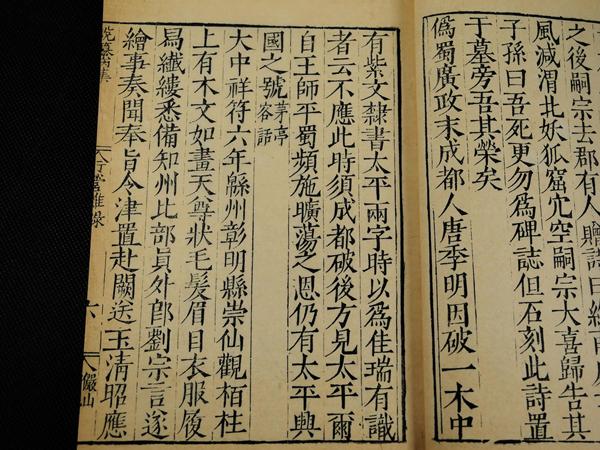 之後嗣宗去郡有人贈詩曰終南
風減渭北妖狐窟穴空嗣宗大喜歸告其
子孫曰吾死更勿爲碑誌但石刻此詩置
于墓旁吾其榮矣
僞蜀廣政末成都人唐季明因破一木中
有紫文隸書太平兩字時以爲佳瑞有識
者云不應此時須成都破後方見太平爾
自王師平蜀頻施曠蕩之恩仍有太平興
國之號茅亭客話
大中祥符六年緜州彰明縣崇仙觀栢柱
上有木文如畫天尊狀毛髮眉目衣服履
舄纖縷悉備知州比部員外郎劉宗言遂
繪事奏聞奉旨令津置赴闕送玉清昭應
行營雜錄
六
儼山